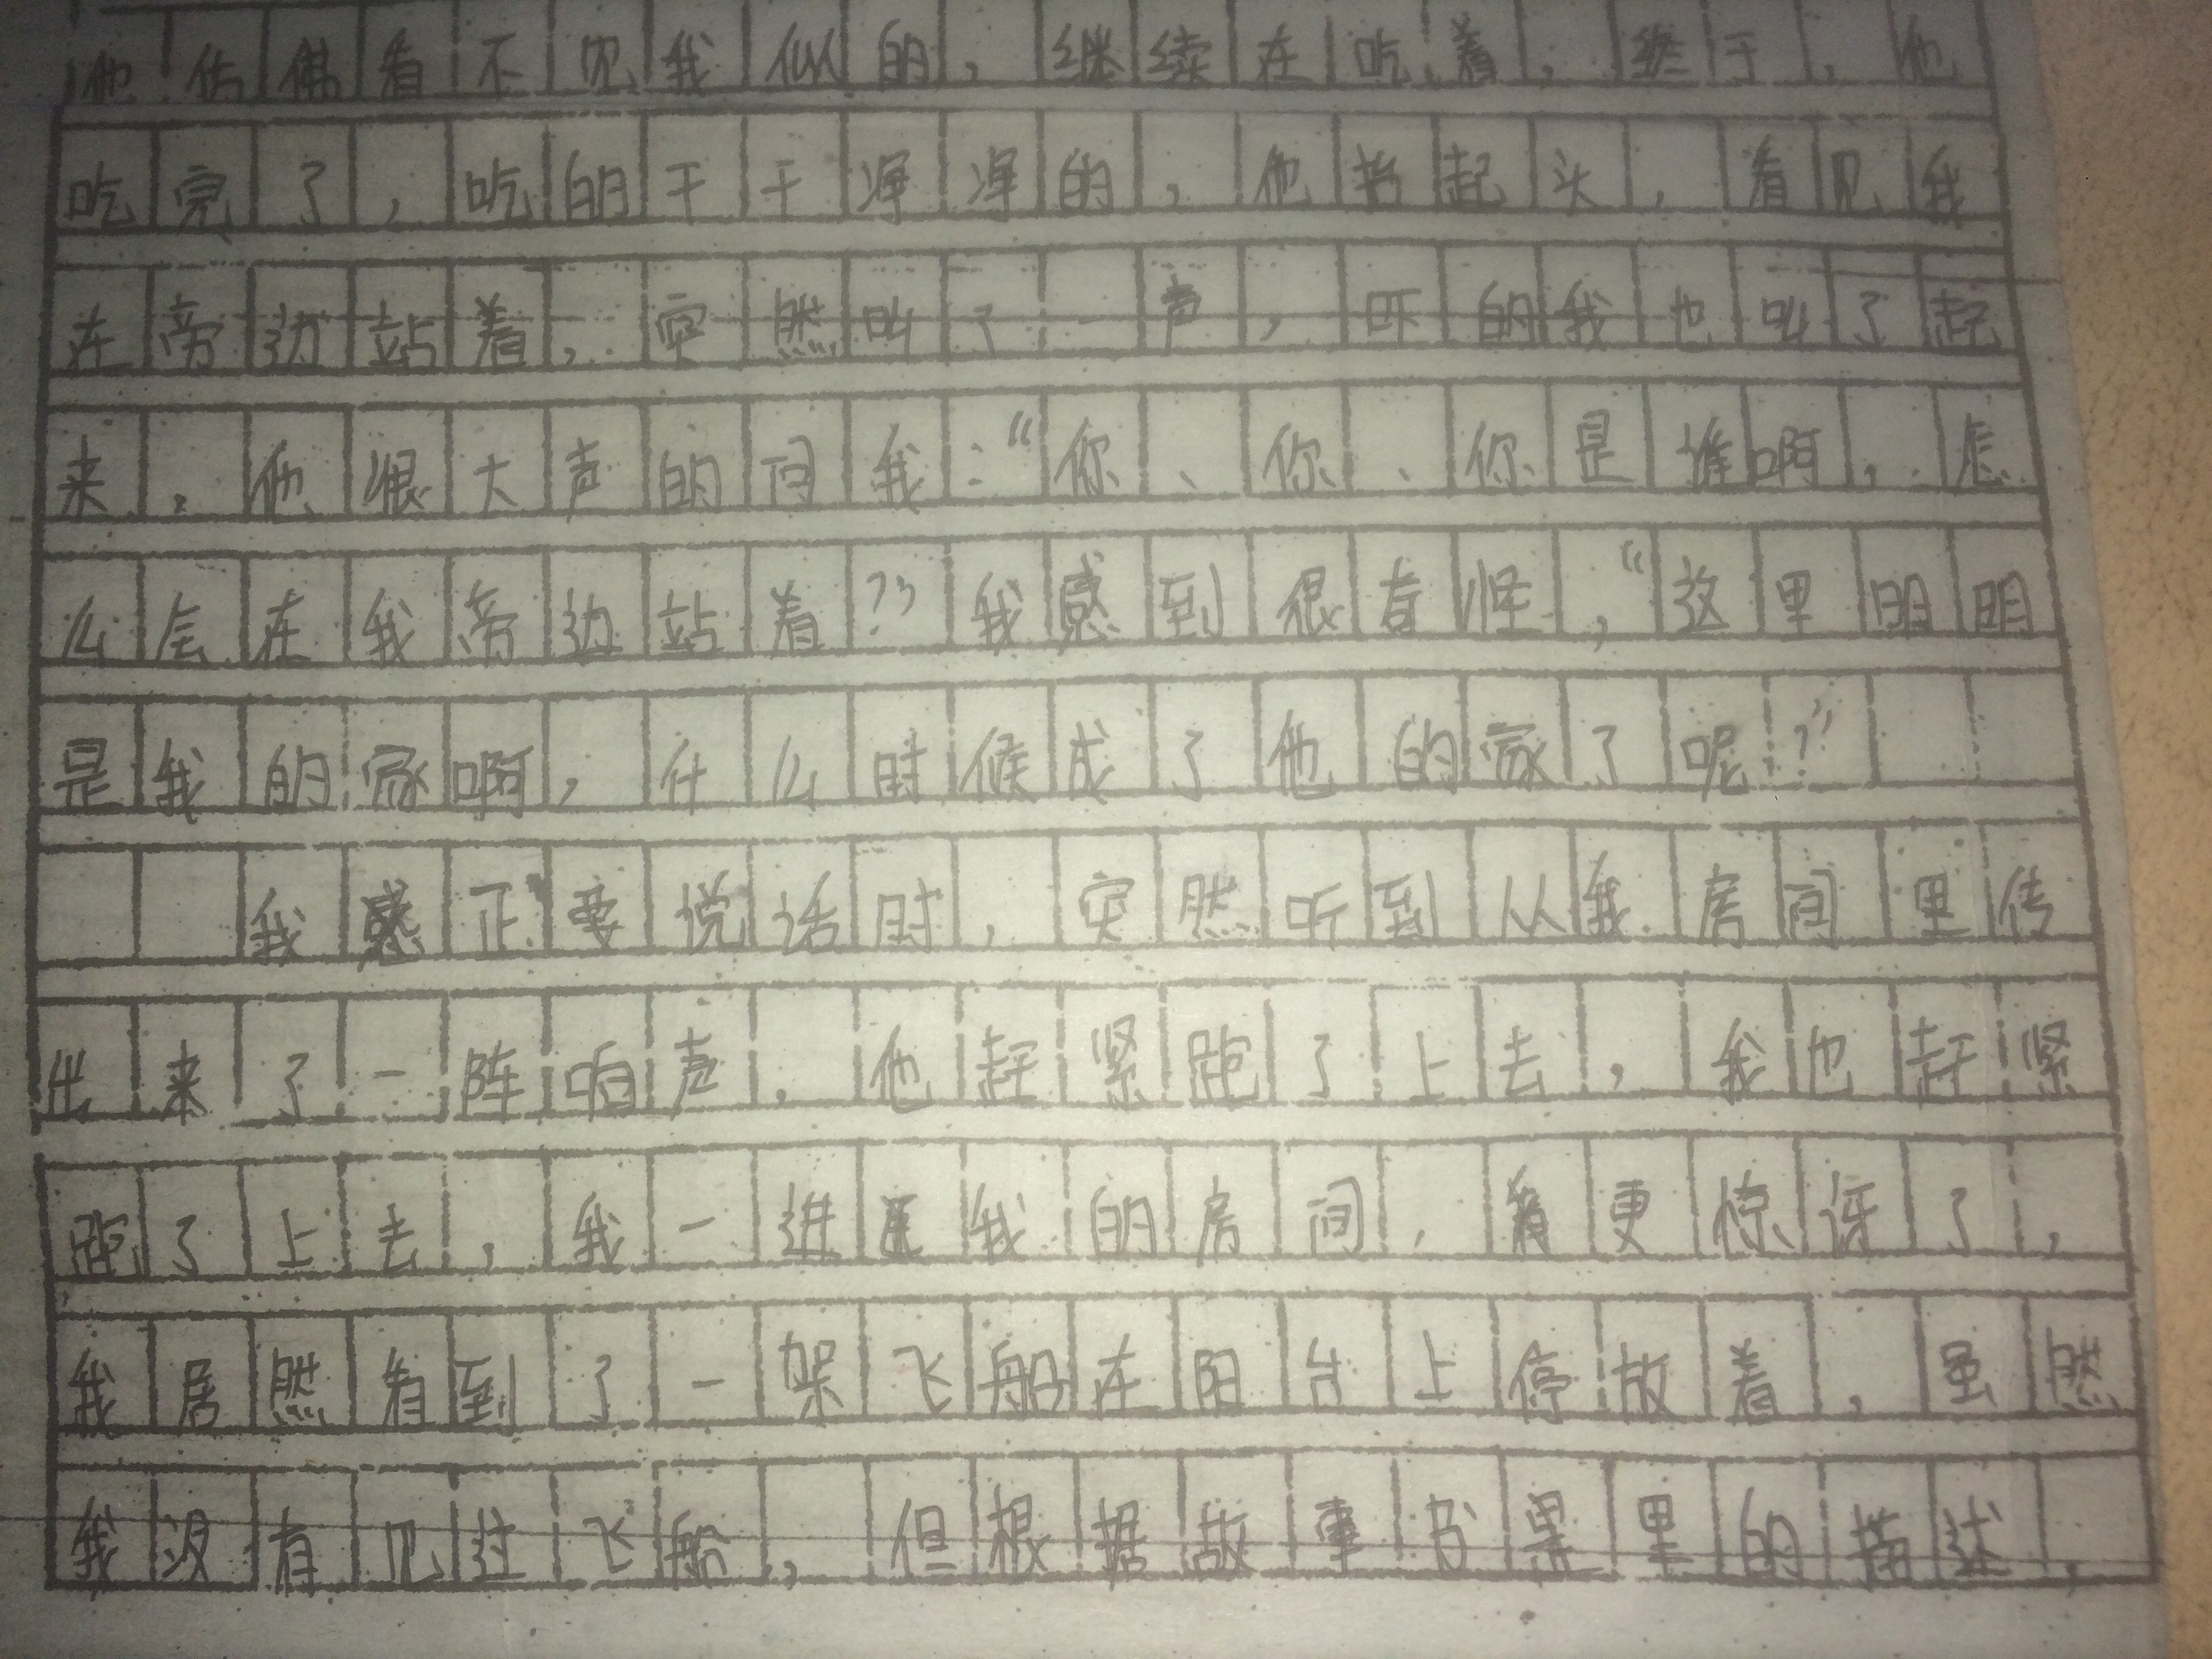 他仿佛看不见我似的，继续在吃着，终于，他
吃完了，吃的干干净净的，他抬起头，看见我
在旁边站着，突然叫了一声，吓的我也叫了起
来，他很大声的问我：“你、你、你是谁啊，怎
么会在我旁边站着？”我感到很奇怪，“这里明明
是我的家啊，什么时候成了他的家了呢？”
我感正要说话时，突然听到从我房间里传
出来了一阵响声，他赶紧跑了上去，我也赶紧
跑了上去，我一进我的房间，更惊讶了，
我居然看到了一架飞船在阳台上停放着，虽然
我没有见过飞船，但根据故事书里的描述，